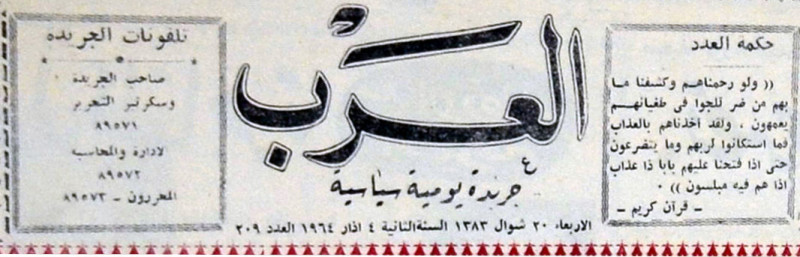 حكمة العدد
(( ولو رحمناهم وكشفنا ما
بهم من ضر للجوا فى طغيانهم
يعمهون ، ولقد اخذناهم بالعذاب
فما استكانوا لربهم وما يتضرعون
حتى اذا فتحنا عليهم بابا ذا عذاب
اذا هم فيه مبلسون )) ٠
ـ قرآن كريم ـ
العرب
جريدة يومية سياسية
الاربعاء ٢٠ شوال ١٣٨٣ السنة الثانية ٤ اذار ١٩٦٤ العدد ٢٠٩
تلفونات الجريدة
صاحب الجريدة
وسكرتير التحرير
٨٩٥٧١
لادارة والمحاسبة
٨٩٥٧٢
المحررون ـ ٨٩٥٧٣